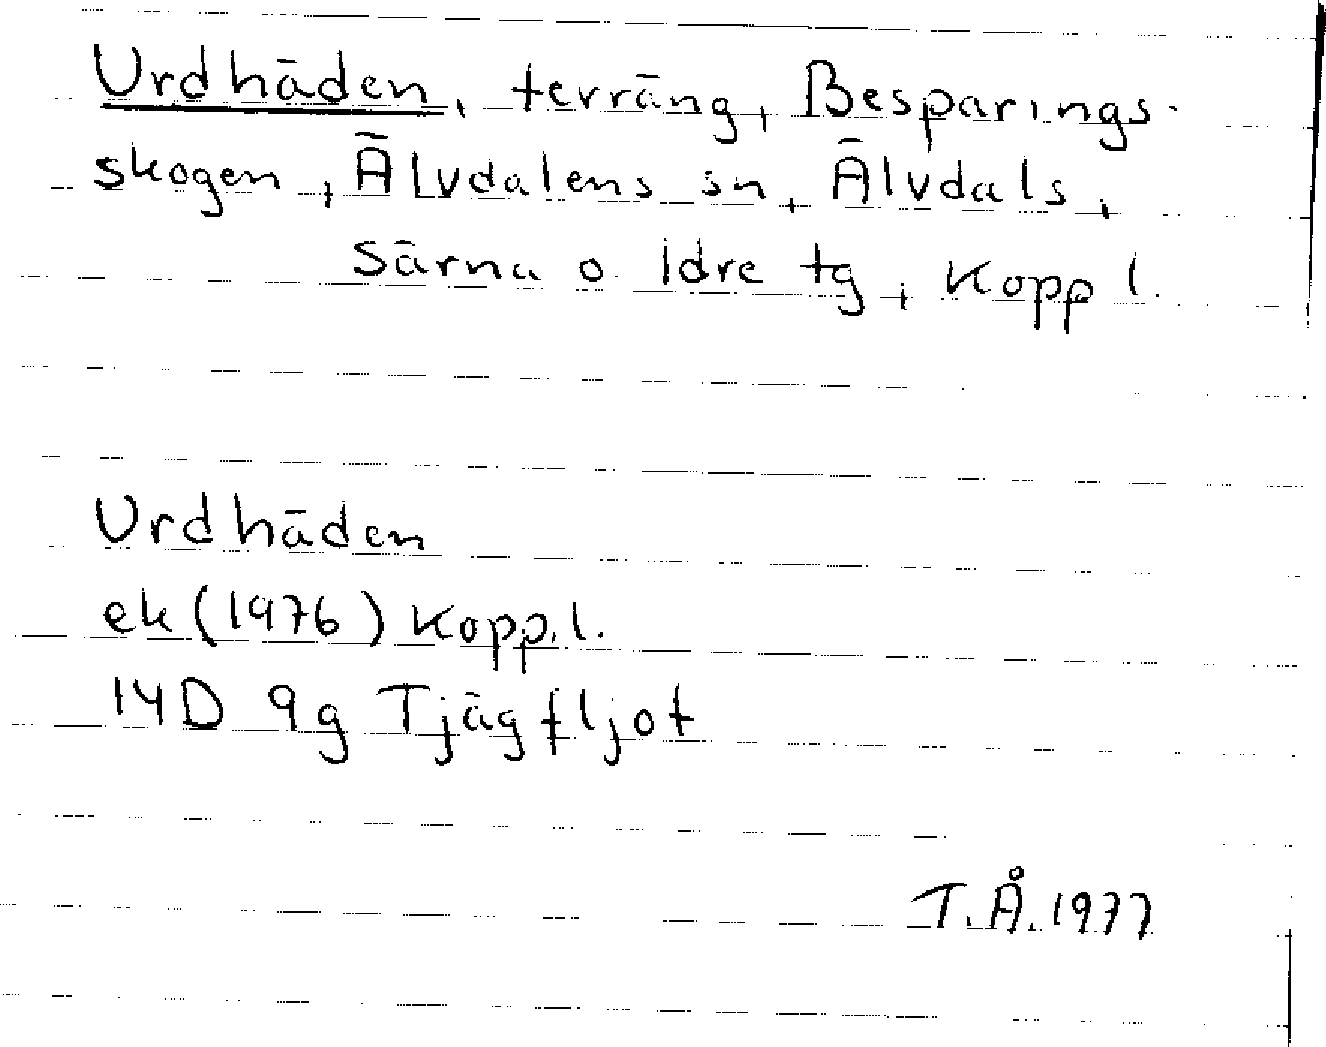 Urdhäden, terräng, Besparings-
skogen, Älvdalens sn, Älvdals,
Särna o. Idre tg, Kopp l.
Urdhäden
ek (1976) Kopp. l.
14D 9g Tjägfljot
T.Å. 1977